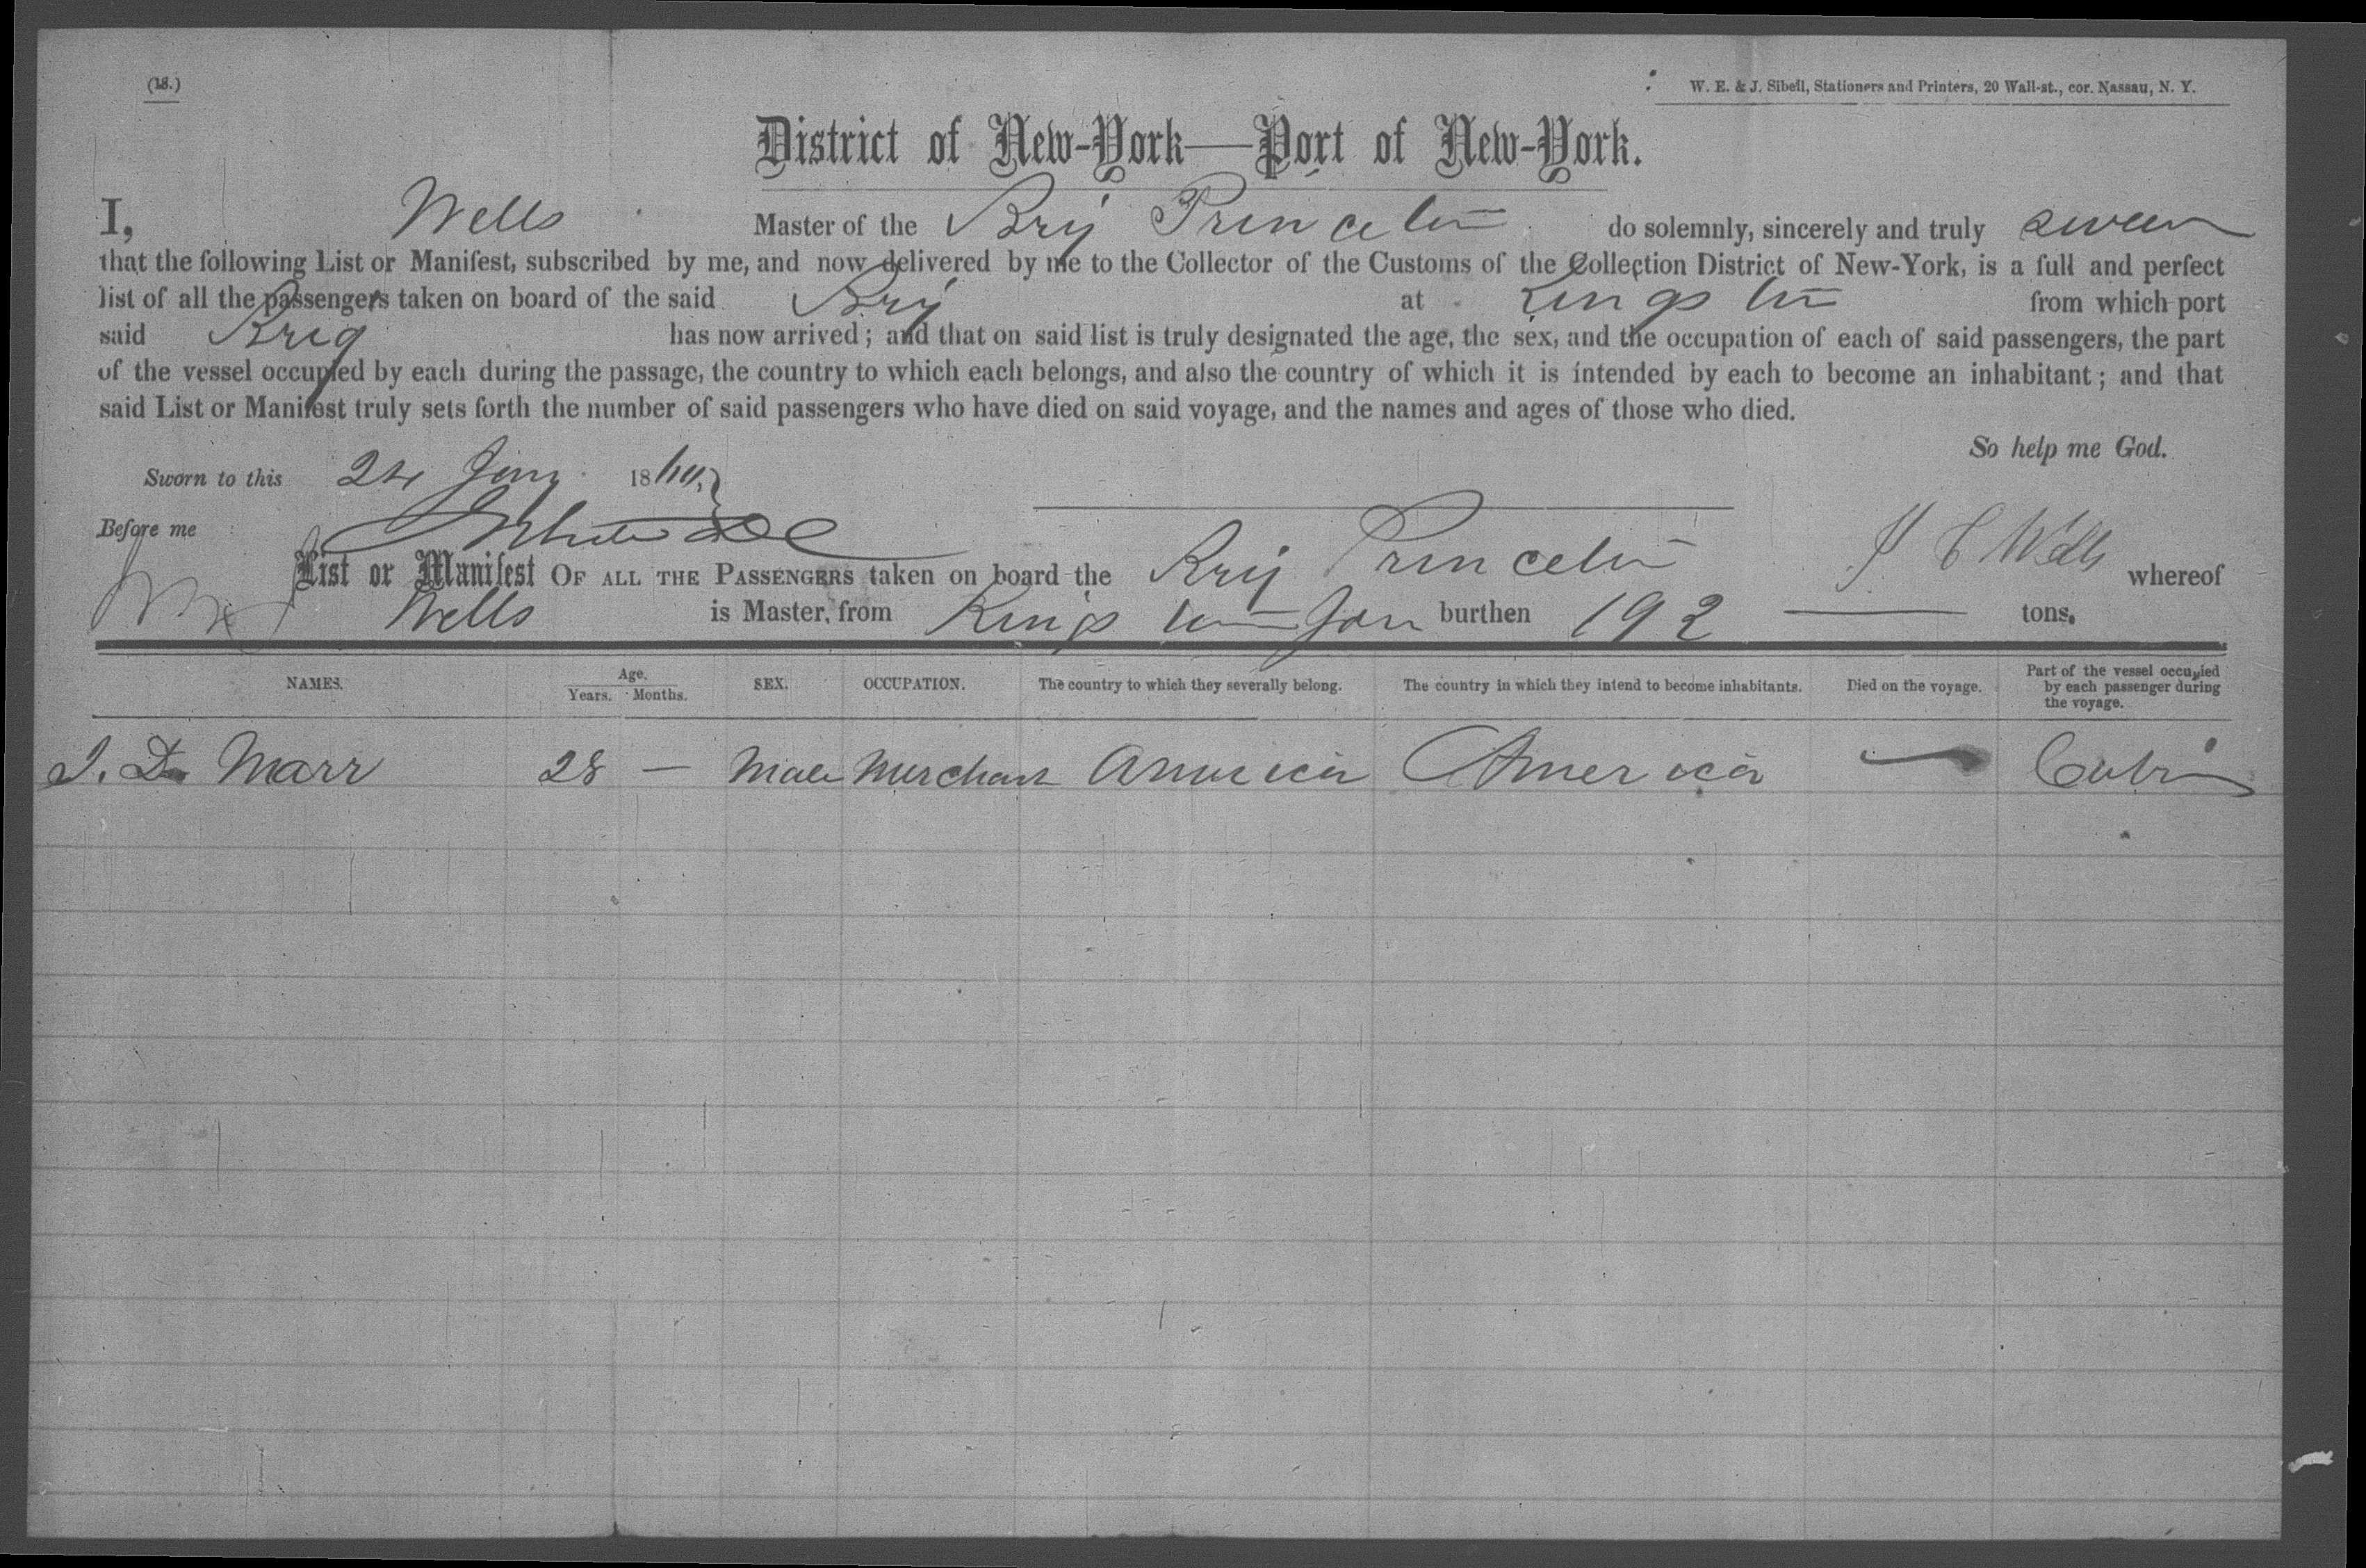 (18.)
W. E. & J. Sibell, Stationers and Printers, 20 Wall-st., cor. Nassau, N. Y.
District of New-York—Port of New-York.
I, Wells Master of the Brig Princeton do solemnly, sincerely and truly swear
that the following List or Manifest, subscribed by me, and now delivered by me to the Collector of the Customs of the Collection District of New-York, is a full and perfect
list of all the passengers taken on board of the said Brig at Kingston from which port
said Brig has now arrived; and that on said list is truly designated the age, the sex, and the occupation of each of said passengers, the part
of the vessel occupied by each during the passage, the country to which each belongs, and also the country of which it is intended by each to become an inhabitant; and that
said List or Manifest truly sets forth the number of said passengers who have died on said voyage, and the names and ages of those who died.
So help me God.
Sworn to this 24 Jany 1860
Before me
J C Wells
List or Manifest OF ALL THE PASSENGERS taken on board the Brig Princeton whereof
Wells is Master, from Kingston Jam burthen 192 — tons.
NAMES. Age. Years. Months. SEX. OCCUPATION. The country to which they severally belong. The country in which they intend to become inhabitants. Died on the voyage. Part of the vessel occupied by each passenger during the voyage.
J. D. Marr 28 — Male Merchant America America — Cabin